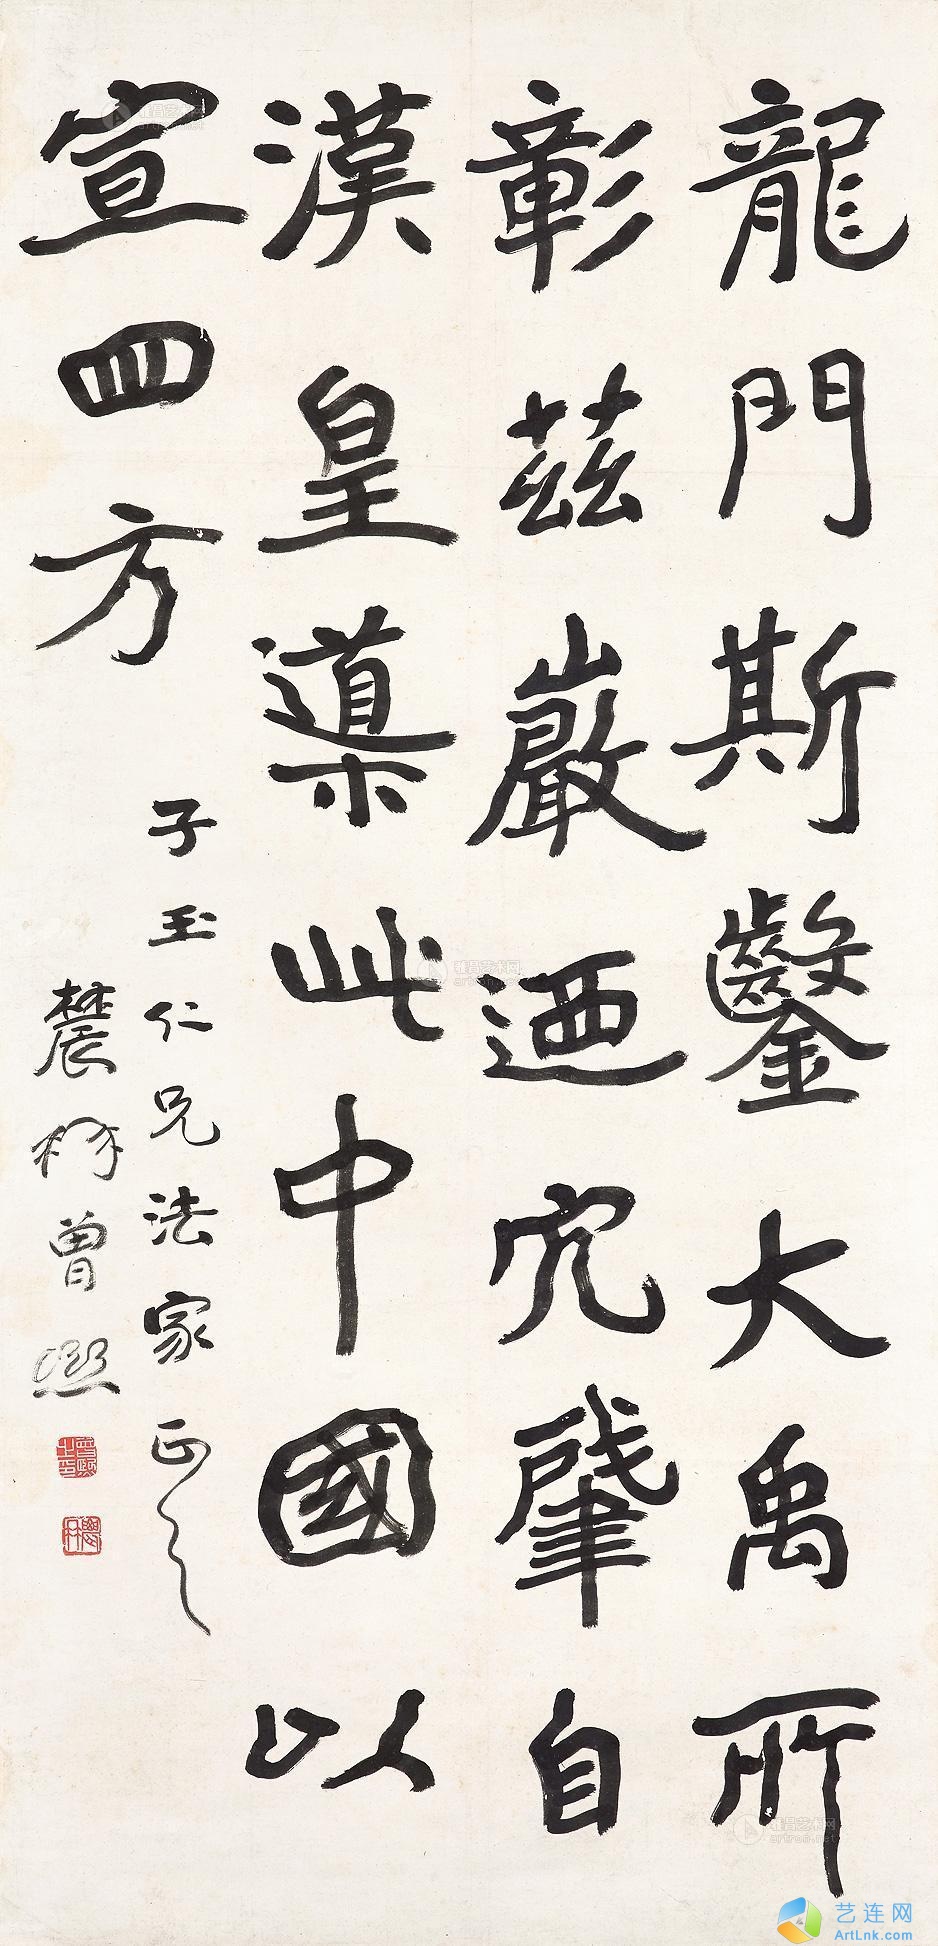 龍門斯鑿大禹所
彰茲巖迺穴肇自
漢皇導此中國以
宣四方
子玉仁兄法家正之
農髯曾熙
曾熙之印
艺连网
ArtLnk.com